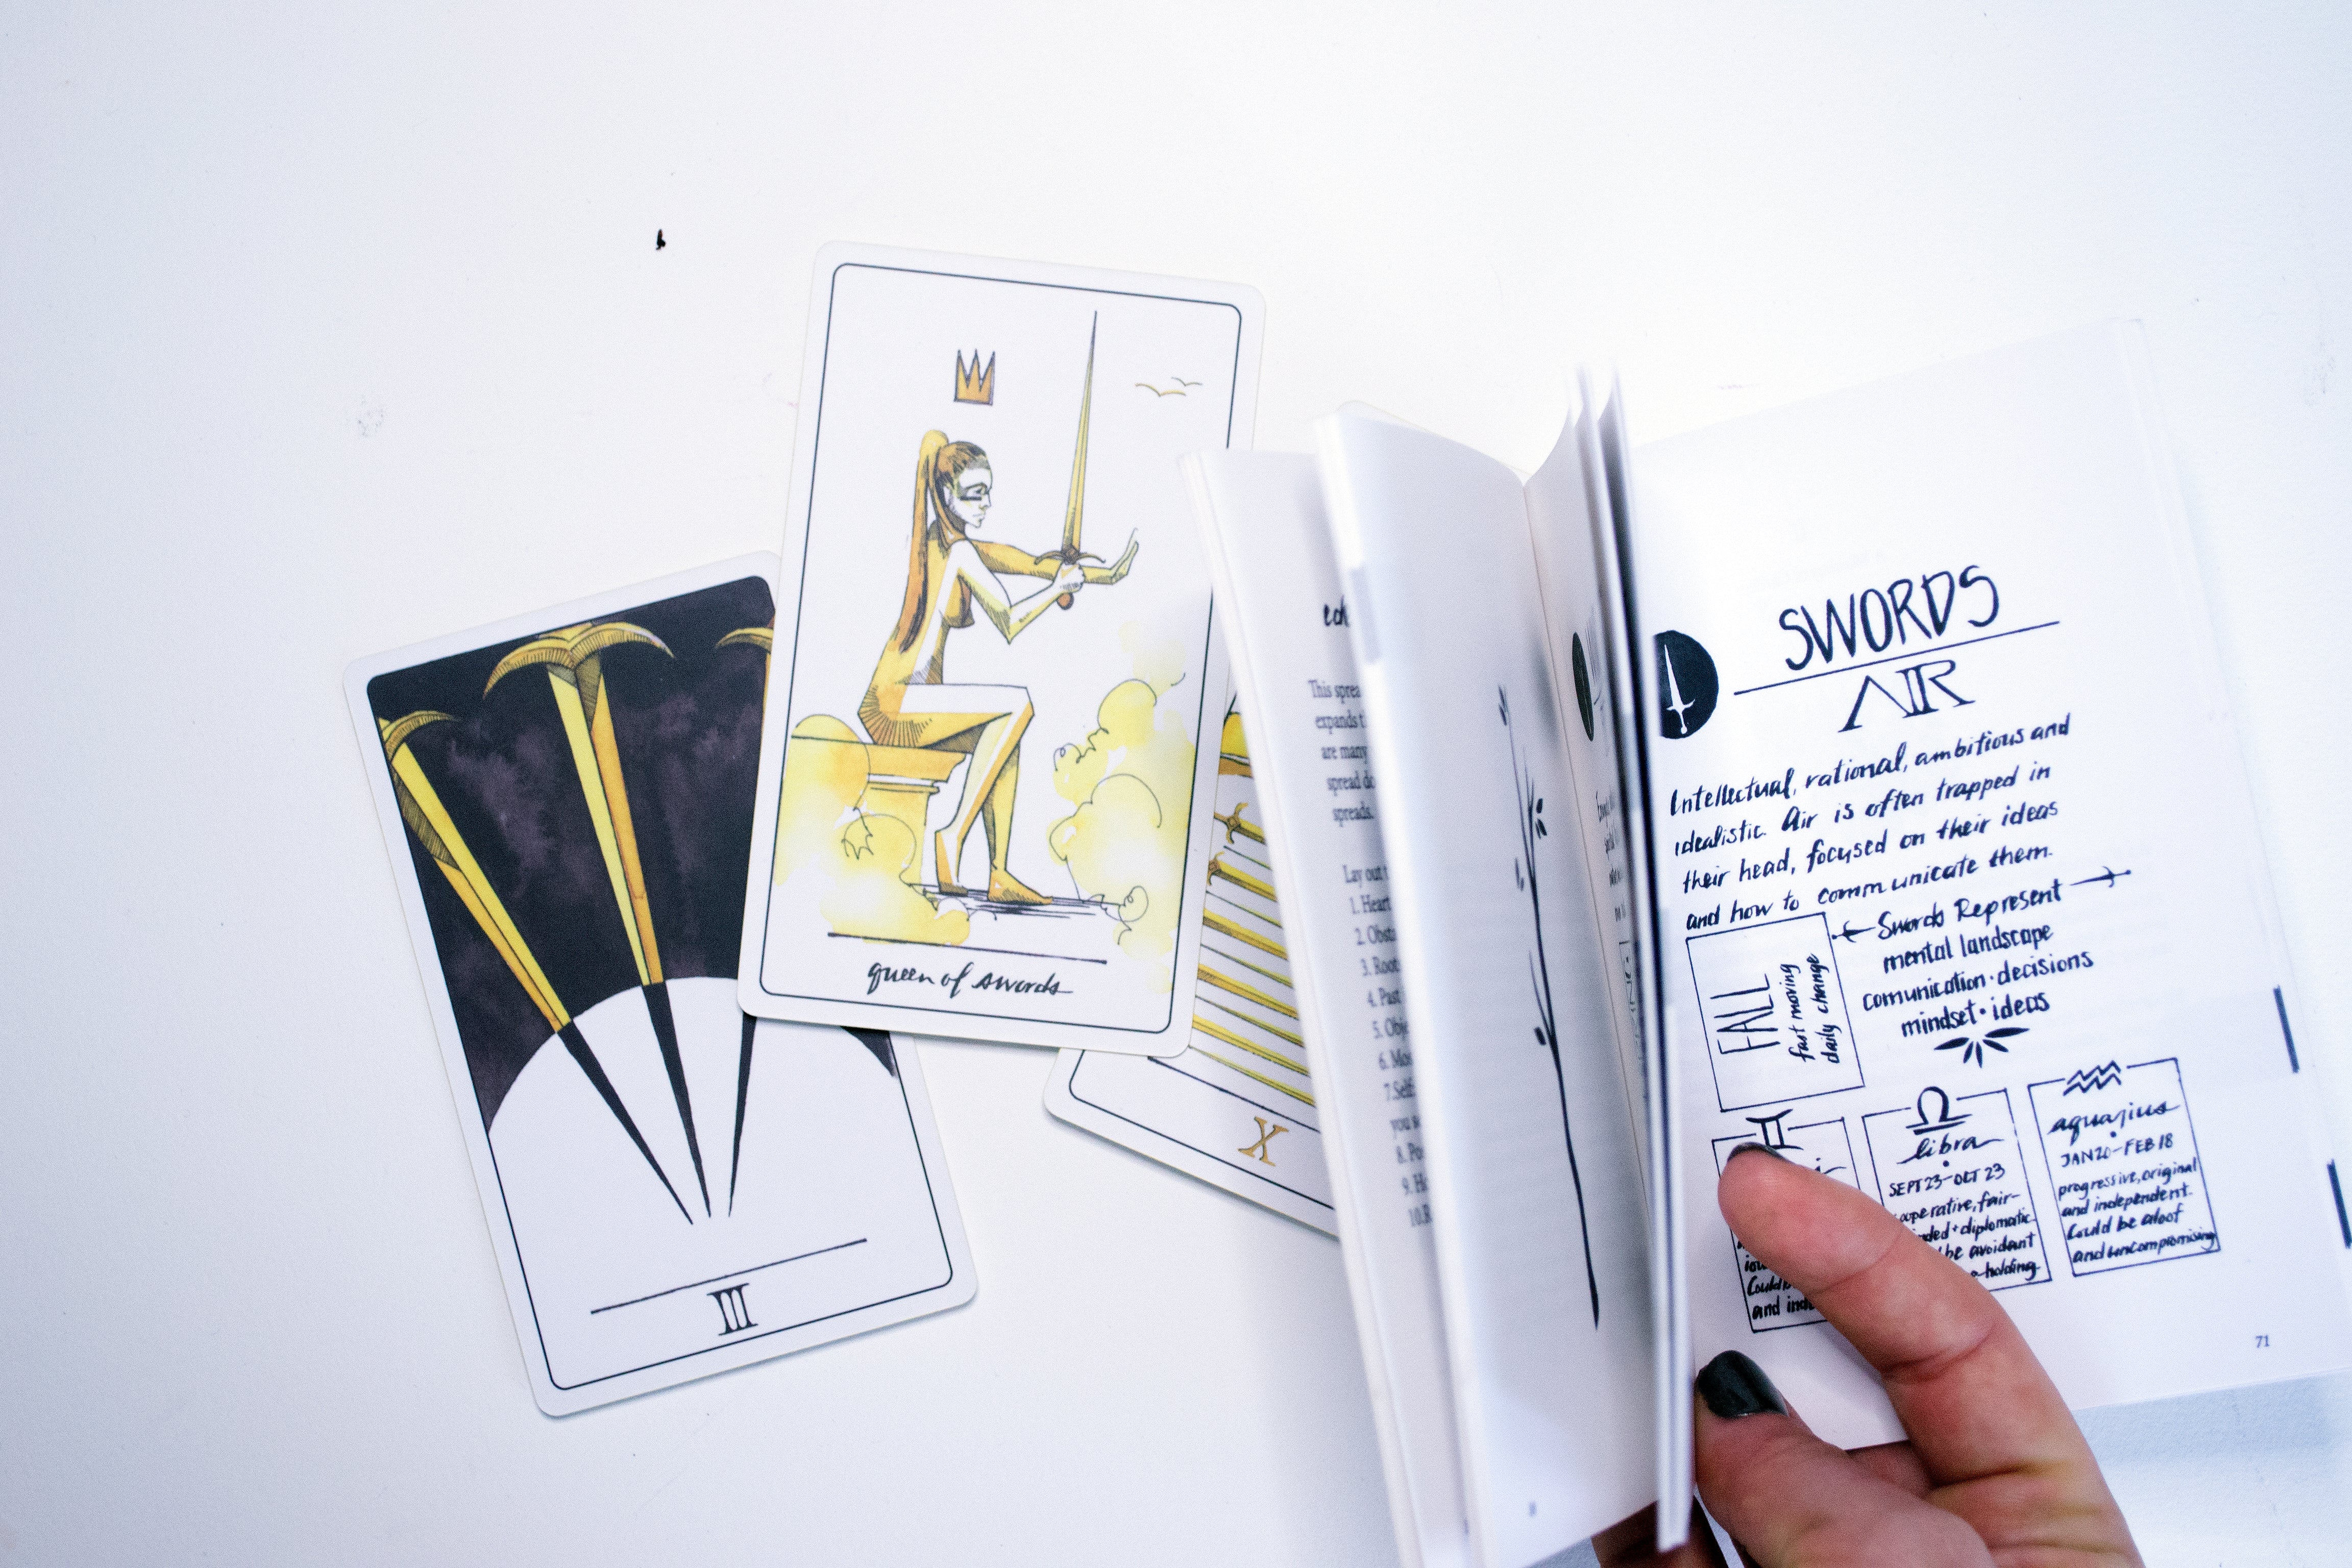 queen of swords
III
X
This sprea
expands t
are many
spread do
spreads.
Lay out t
1. Heart
2. Obst
3. Root
4. Past
5. Obje
6. Mos
7. Self
you
8. Po
9. H
10. R
SWORDS
AIR
Intellectual, rational, ambitious and
idealistic. Air is often trapped in
their head, focused on their ideas
and how to communicate them.
Swords Represent
mental landscape
comunication · decisions
mindset · ideas
FALL
fast moving
daily change
libra
SEPT 23-OCT 23
operative, fair-
nded + diplomatic
be avoidant
a-holding
aquarius
JAN 20-FEB 18
progressive, original
and independent.
Could be aloof
and uncompromising
Could
and ind
71